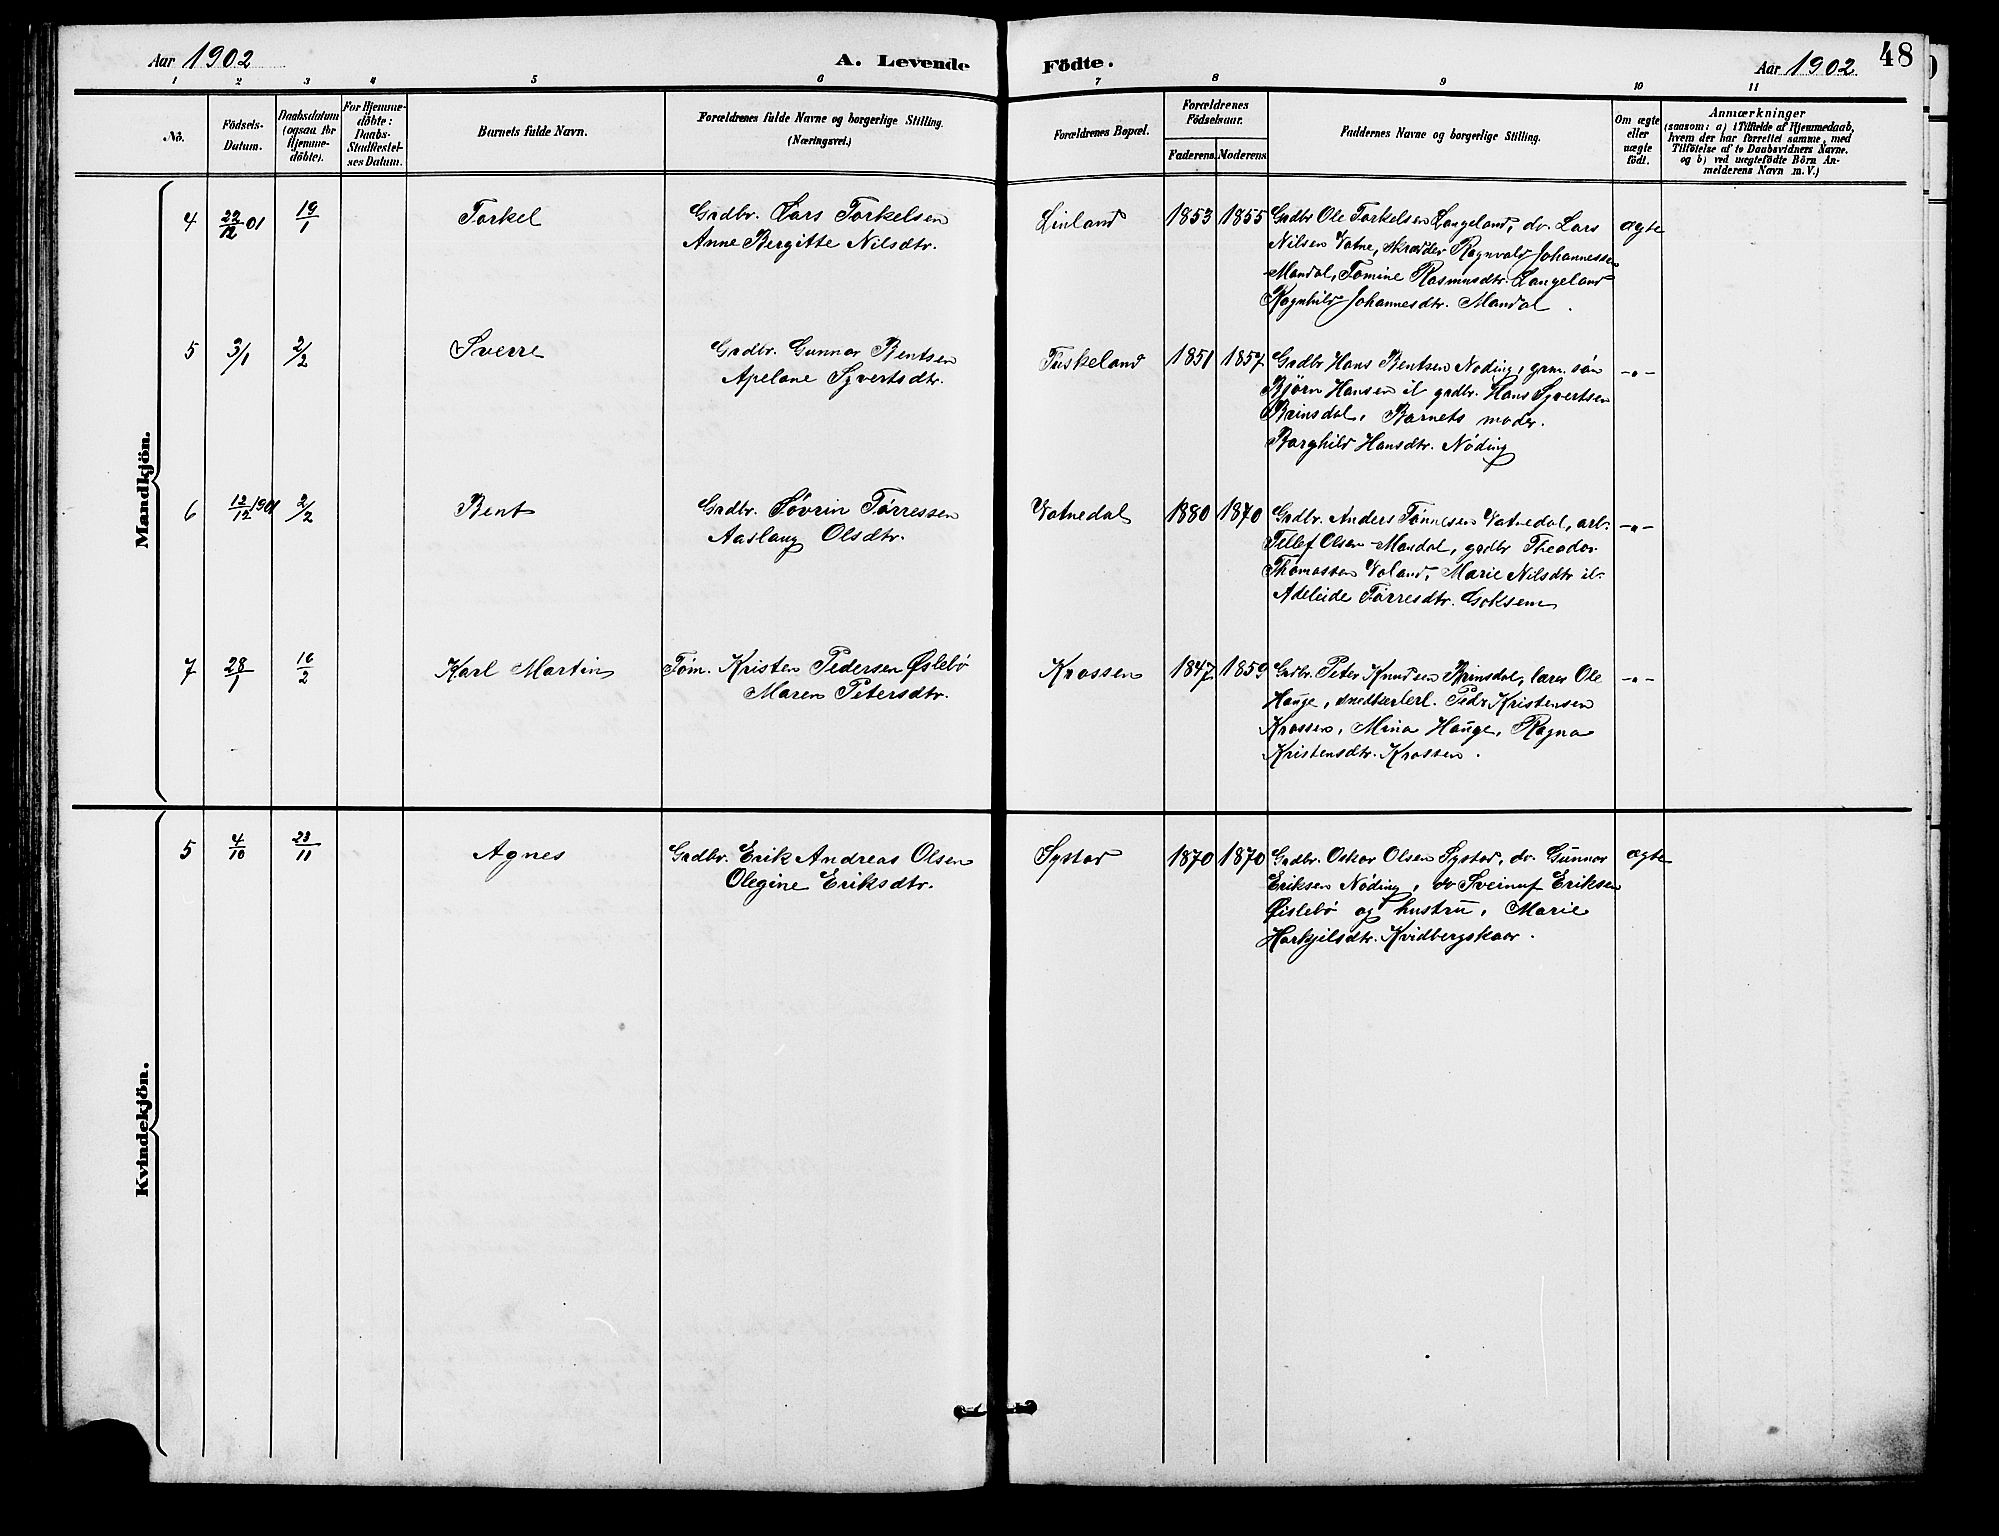 Aar 1902
A. Levende Födte.
Aar 1902
48
1 2 3 4 5 6 7 8 9 10 11
Nö.
Födsels-
Datum.
Daabsdatum
(ogsaa for
Hjemme-
döbte).
For Hjemme-
döbte:
Daabs-
Stadfæstel-
ses Datum.
Barnets fulde Navn.
Forældrenes fulde Navne og borgerlige Stilling.
(Næringsvei.)
Forældrenes Bopæl.
Forældrenes
Födselsaar.
Faderens.
Moderens.
Faddernes Navne og borgerlige Stilling.
Om ægte
eller
uægte
födt.
Anmærkninger
(saasom: a) i Tilfælde af Hjemmedaab,
hvem der har forrettet samme, med
Tilföielse af to Daabsvidners Navne.
og b) ved uægtefödte Börn An-
melderens Navn m. V.)
Mandkjön.
4
22/12 01
19/1
Torkel
Grdbr. Lars Torkelsen
Anne Bergitte Nilsdtr.
Linland
1853
1855
Grdbr Ole Torkelsen Langeland, do. Lars
Nilsen Vatne, skrædder Ragnvald Johannessen
Mandal, Tomine Rasmusdtr. Langeland
Ragnhild Johannesdtr. Mandal.
ægte
5
3/1
2/2
Sverre
Grdbr. Gunnar Bentsen
Apelone Syvertsdtr.
Tuskeland
1851
1857
Grdbr Hans Bentsen Nöding, grm. sön
Bjørn Hansen il grdbr. Hans Syvertsen
Brinsdal, Barnets moder.
Borghild Hansdtr. Nöding
-"-
6
12/12 1901
2/2
Bent
Grdbr. Søvrin Tørressen
Aaslaug Olsdtr.
Vatnedal
1880
1870
Grdbr. Anders Tønnesen Vatnedal, arb.
Tellef Olsen Mandal, grdbr Theodor
Thomassen Valand, Marie Nilsdtr il.
Adeleide Tørresdtr. Goksem
-"-
7
28/1
16/2
Karl Martin
Tøm. Kristen Pedersen Øslebö
Maren Petersdtr.
Krossen
1847
1859
Grdbr. Peter Knudsen Brinsdal, lærer Ole
Hauge, snedkerlerl. Pedr Kristensen
Krossen, Mina Hauge, Ragna
Kristensdtr. Krossen.
-"-
Kvindekjön.
5
4/10
23/11
Agnes
Grdbr. Erik Andreas Olsen
Olegine Eriksdtr.
Systad
1870
1870
Grdbr. Oskar Olsen Systad, do. Gunnar
Eriksen Nöding, do Sveinuf Eriksen
Øislebö og hustru, Marie
Harkjelsdtr. Kvidbergskaar.
ægte